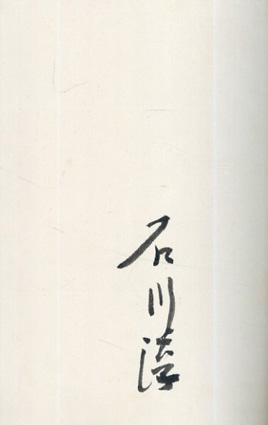 石川淳